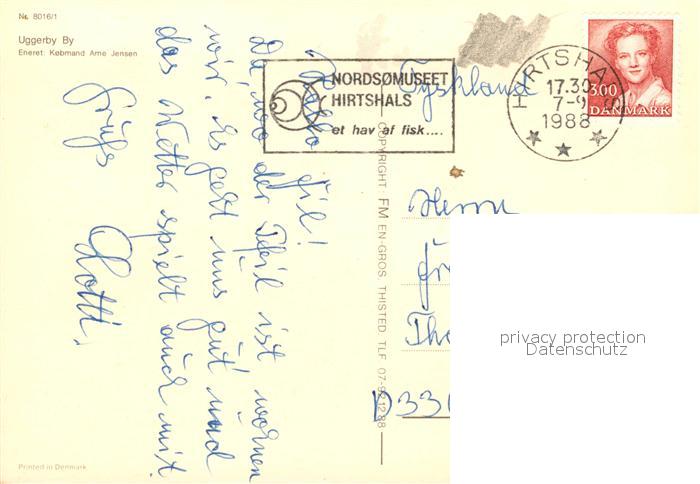 Nr. 8016/1
Uggerby By
Eneret: Købmand Arne Jensen
Hallo Jil!
Da, wo der Pfeil ist wohnen
wir. Es geht uns gut und
das Wetter spielt auch mit
Gruß Lotti.
NORDSØMUSEET
HIRTSHALS
et hav af fisk....
HIRTSHALS
17.30
7-9
1988
3.00
DANMARK
Tyskland
COPYRIGHT: FM EN-GROS. THISTED. TLF. 07-92 12 88
Herrn
D 33
privacy protection
Datenschutz
Printed in Denmark